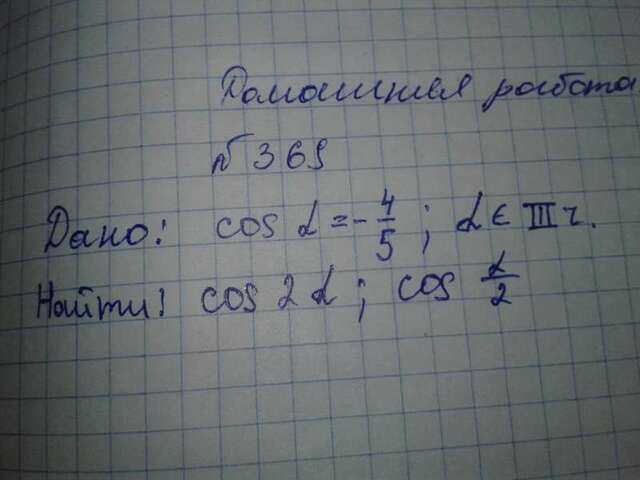 Домашняя работа
№369
Дано: cos α = -4/5; α ∈ III ч.
Найти: cos 2α; cos α/2